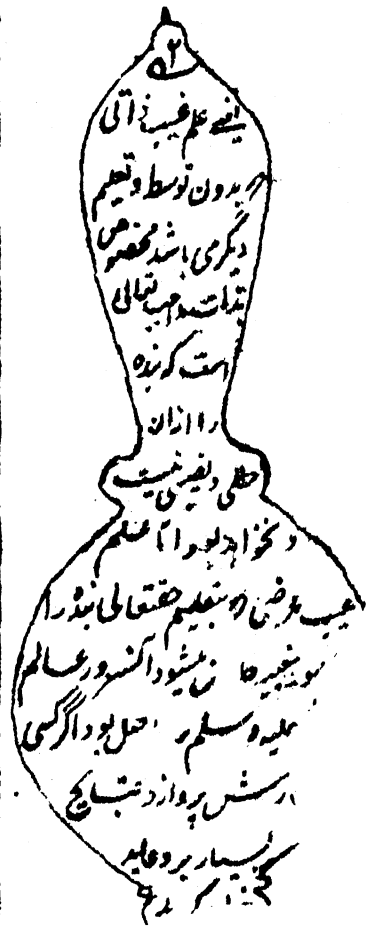 ۲
یعنے علم غیب ذاتی
کہ بدون توسط و تعلیم
دیگری باشد مخصوص
بذات واجب تعالی
است کہ بندہ
را ازان
حظی و نصیبی نیست
و نخواهد بود اما علم
غیب عرضی کہ بتعلیم حقتعالی بندہ را
میشود آنسرور عالم
علیہ وسلم بود اگر کسی
پردازد نتایج
بسیار برو عاید